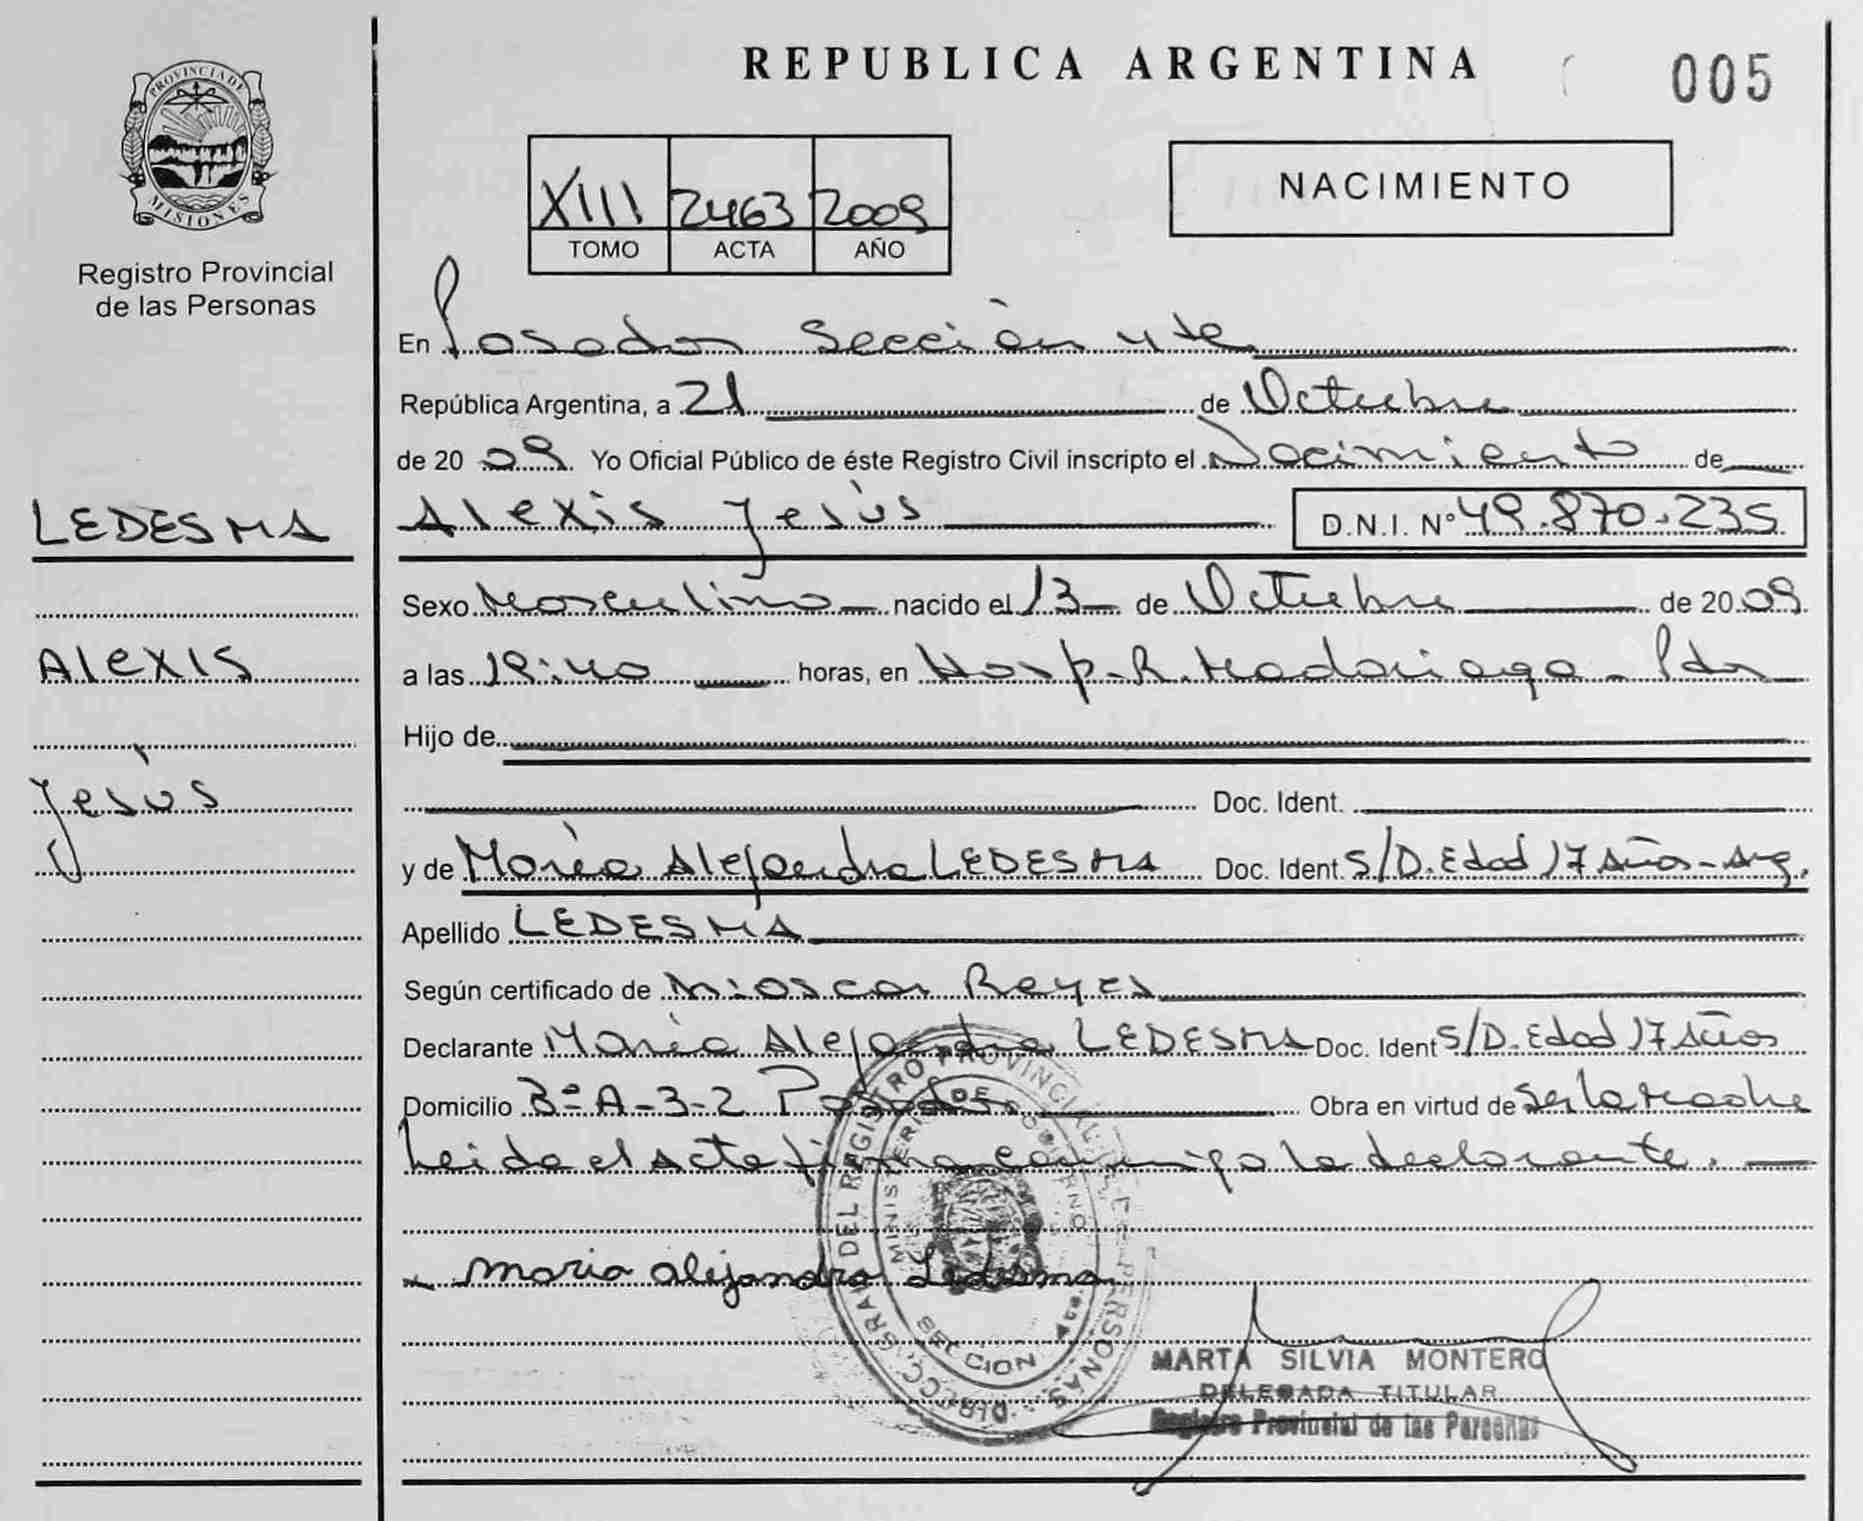 REPUBLICA ARGENTINA
005
PROVINCIA DE
MISIONES
Registro Provincial
de las Personas
XIII 2463 2009
TOMO ACTA AÑO
NACIMIENTO
En Posadas Sección 4ta
República Argentina, a 21 de Octubre
de 20 09 Yo Oficial Público de éste Registro Civil inscripto el Nacimiento de
LEDESMA
Alexis Jesús D.N.I. Nº 49.870.235
Sexo Masculino nacido el 13 de Octubre de 20 09
Alexis
a las 19:40 horas, en Hosp. R. Madariaga - Pdas
Hijo de
Jesús
Doc. Ident.
y de María Alejandra LEDESMA Doc. Ident S/D. Edad 17 Años - Arg.
Apellido LEDESMA
Según certificado de Reyes
Declarante María Alejandra LEDESMA Doc. Ident S/D. Edad 17 Años
Domicilio Bº A-3-2 Posadas Obra en virtud de ser la Madre
Leida el Acta firma conmigo la declarante.
maria alejandra Ledesma
MARTA SILVIA MONTERO
DELEGADA TITULAR
Registro Provincial de las Personas